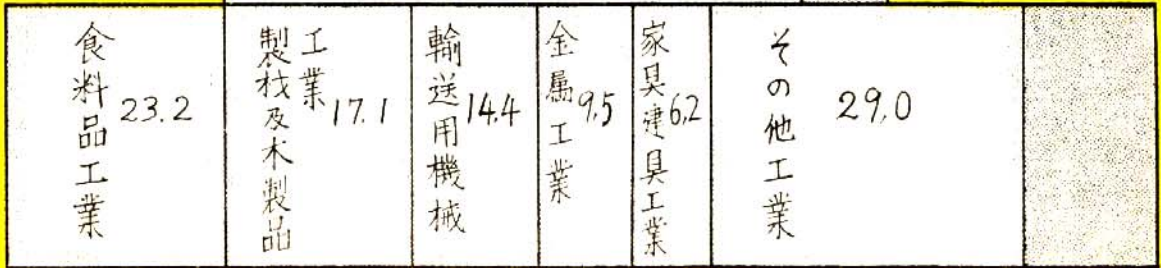 食料品工業
23.2
製材及木製品
工業
17.1
輸送用機械
14.4
金属工業
9.5
家具建具工業
6.2
その他工業
29.0